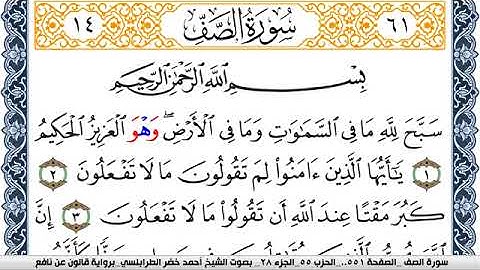 ٦١ سُورَةُ الصَّفِّ ١٤
بِسْمِ اللَّهِ الرَّحْمَٰنِ الرَّحِيمِ
سَبَّحَ لِلَّهِ مَا فِي السَّمَٰوَٰتِ وَمَا فِي الْأَرْضِ ۖ وَهْوَ الْعَزِيزُ الْحَكِيمُ
١ يَٰأَيُّهَا الَّذِينَ ءَامَنُواْ لِمَ تَقُولُونَ مَا لَا تَفْعَلُونَ ٢
كَبُرَ مَقْتًا عِندَ اللَّهِ أَن تَقُولُواْ مَا لَا تَفْعَلُونَ ٣ إِنَّ
سورة الصف _الصفحة ٥٥١_ الحزب ٥٥_الجزء ٢٨_ بصوت الشيخ أحمد خضر الطرابلسي_برواية قالون عن نافع